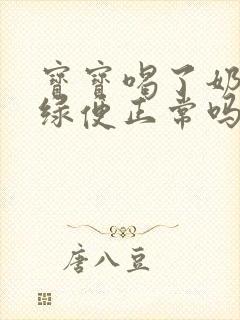 宝宝喝了奶
绿便正常吗
唐八豆